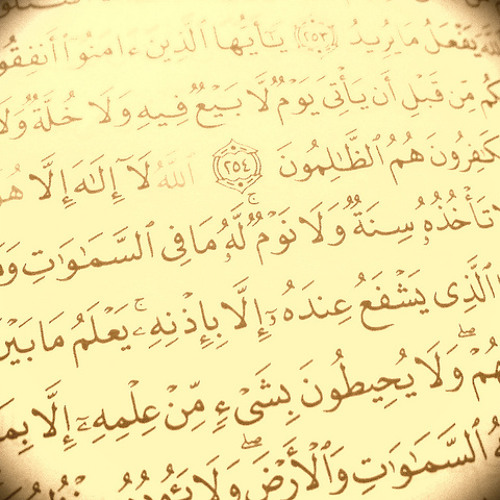 يَفْعَلُ مَا يُرِيدُ ٢٥٣ يَـٰٓأَيُّهَا ٱلَّذِينَ ءَامَنُوٓا۟ أَنفِقُوا۟
كُم مِّن قَبْلِ أَن يَأْتِىَ يَوْمٌ لَّا بَيْعٌ فِيهِ وَلَا خُلَّةٌ وَلَا
كَـٰفِرُونَ هُمُ ٱلظَّـٰلِمُونَ ٢٥٤ ٱللَّهُ لَآ إِلَـٰهَ إِلَّا هُوَ
تَأْخُذُهُۥ سِنَةٌ وَلَا نَوْمٌ ۚ لَّهُۥ مَا فِى ٱلسَّمَـٰوَٰتِ وَ
ٱلَّذِى يَشْفَعُ عِندَهُۥٓ إِلَّا بِإِذْنِهِۦ ۚ يَعْلَمُ مَا بَيْنَ
هُمْ ۖ وَلَا يُحِيطُونَ بِشَىْءٍ مِّنْ عِلْمِهِۦٓ إِلَّا بِمَا
ٱلسَّمَـٰوَٰتِ وَٱلْأَرْضَ ۖ وَلَا